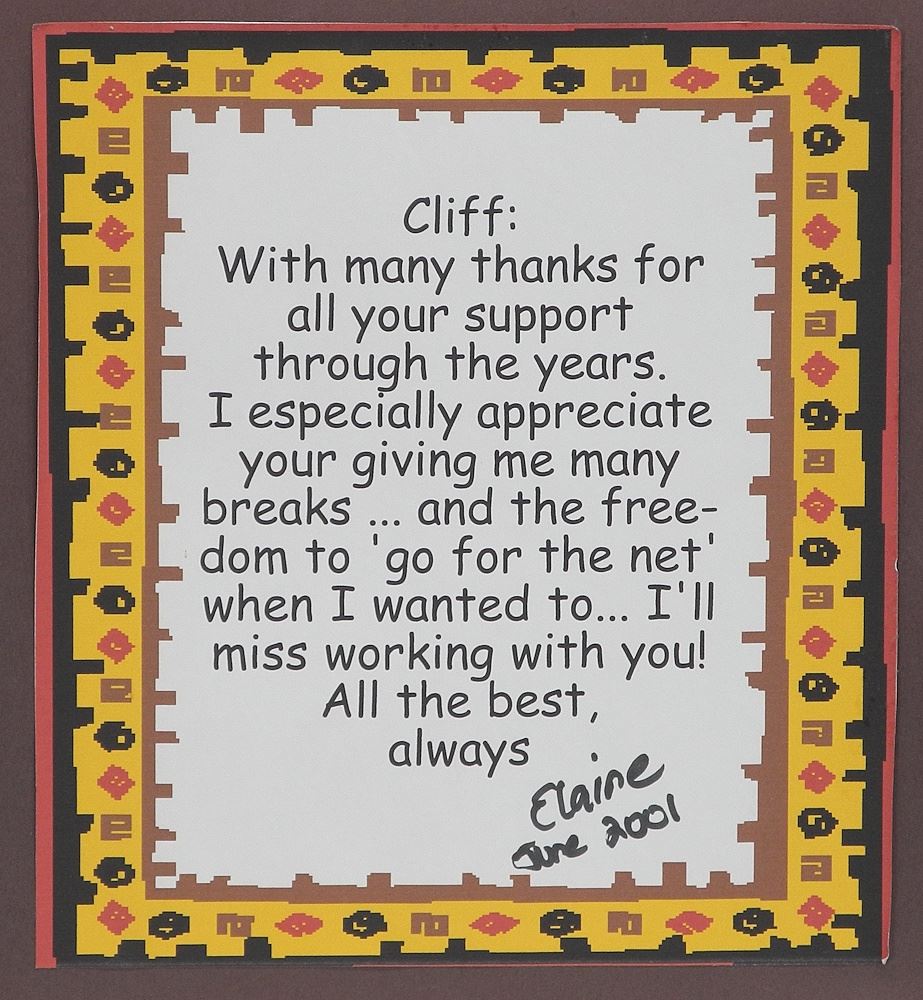 Cliff:
With many thanks for
all your support
through the years.
I especially appreciate
your giving me many
breaks ... and the free-
dom to 'go for the net'
when I wanted to... I'll
miss working with you!
All the best,
always
Elaine
June 2001